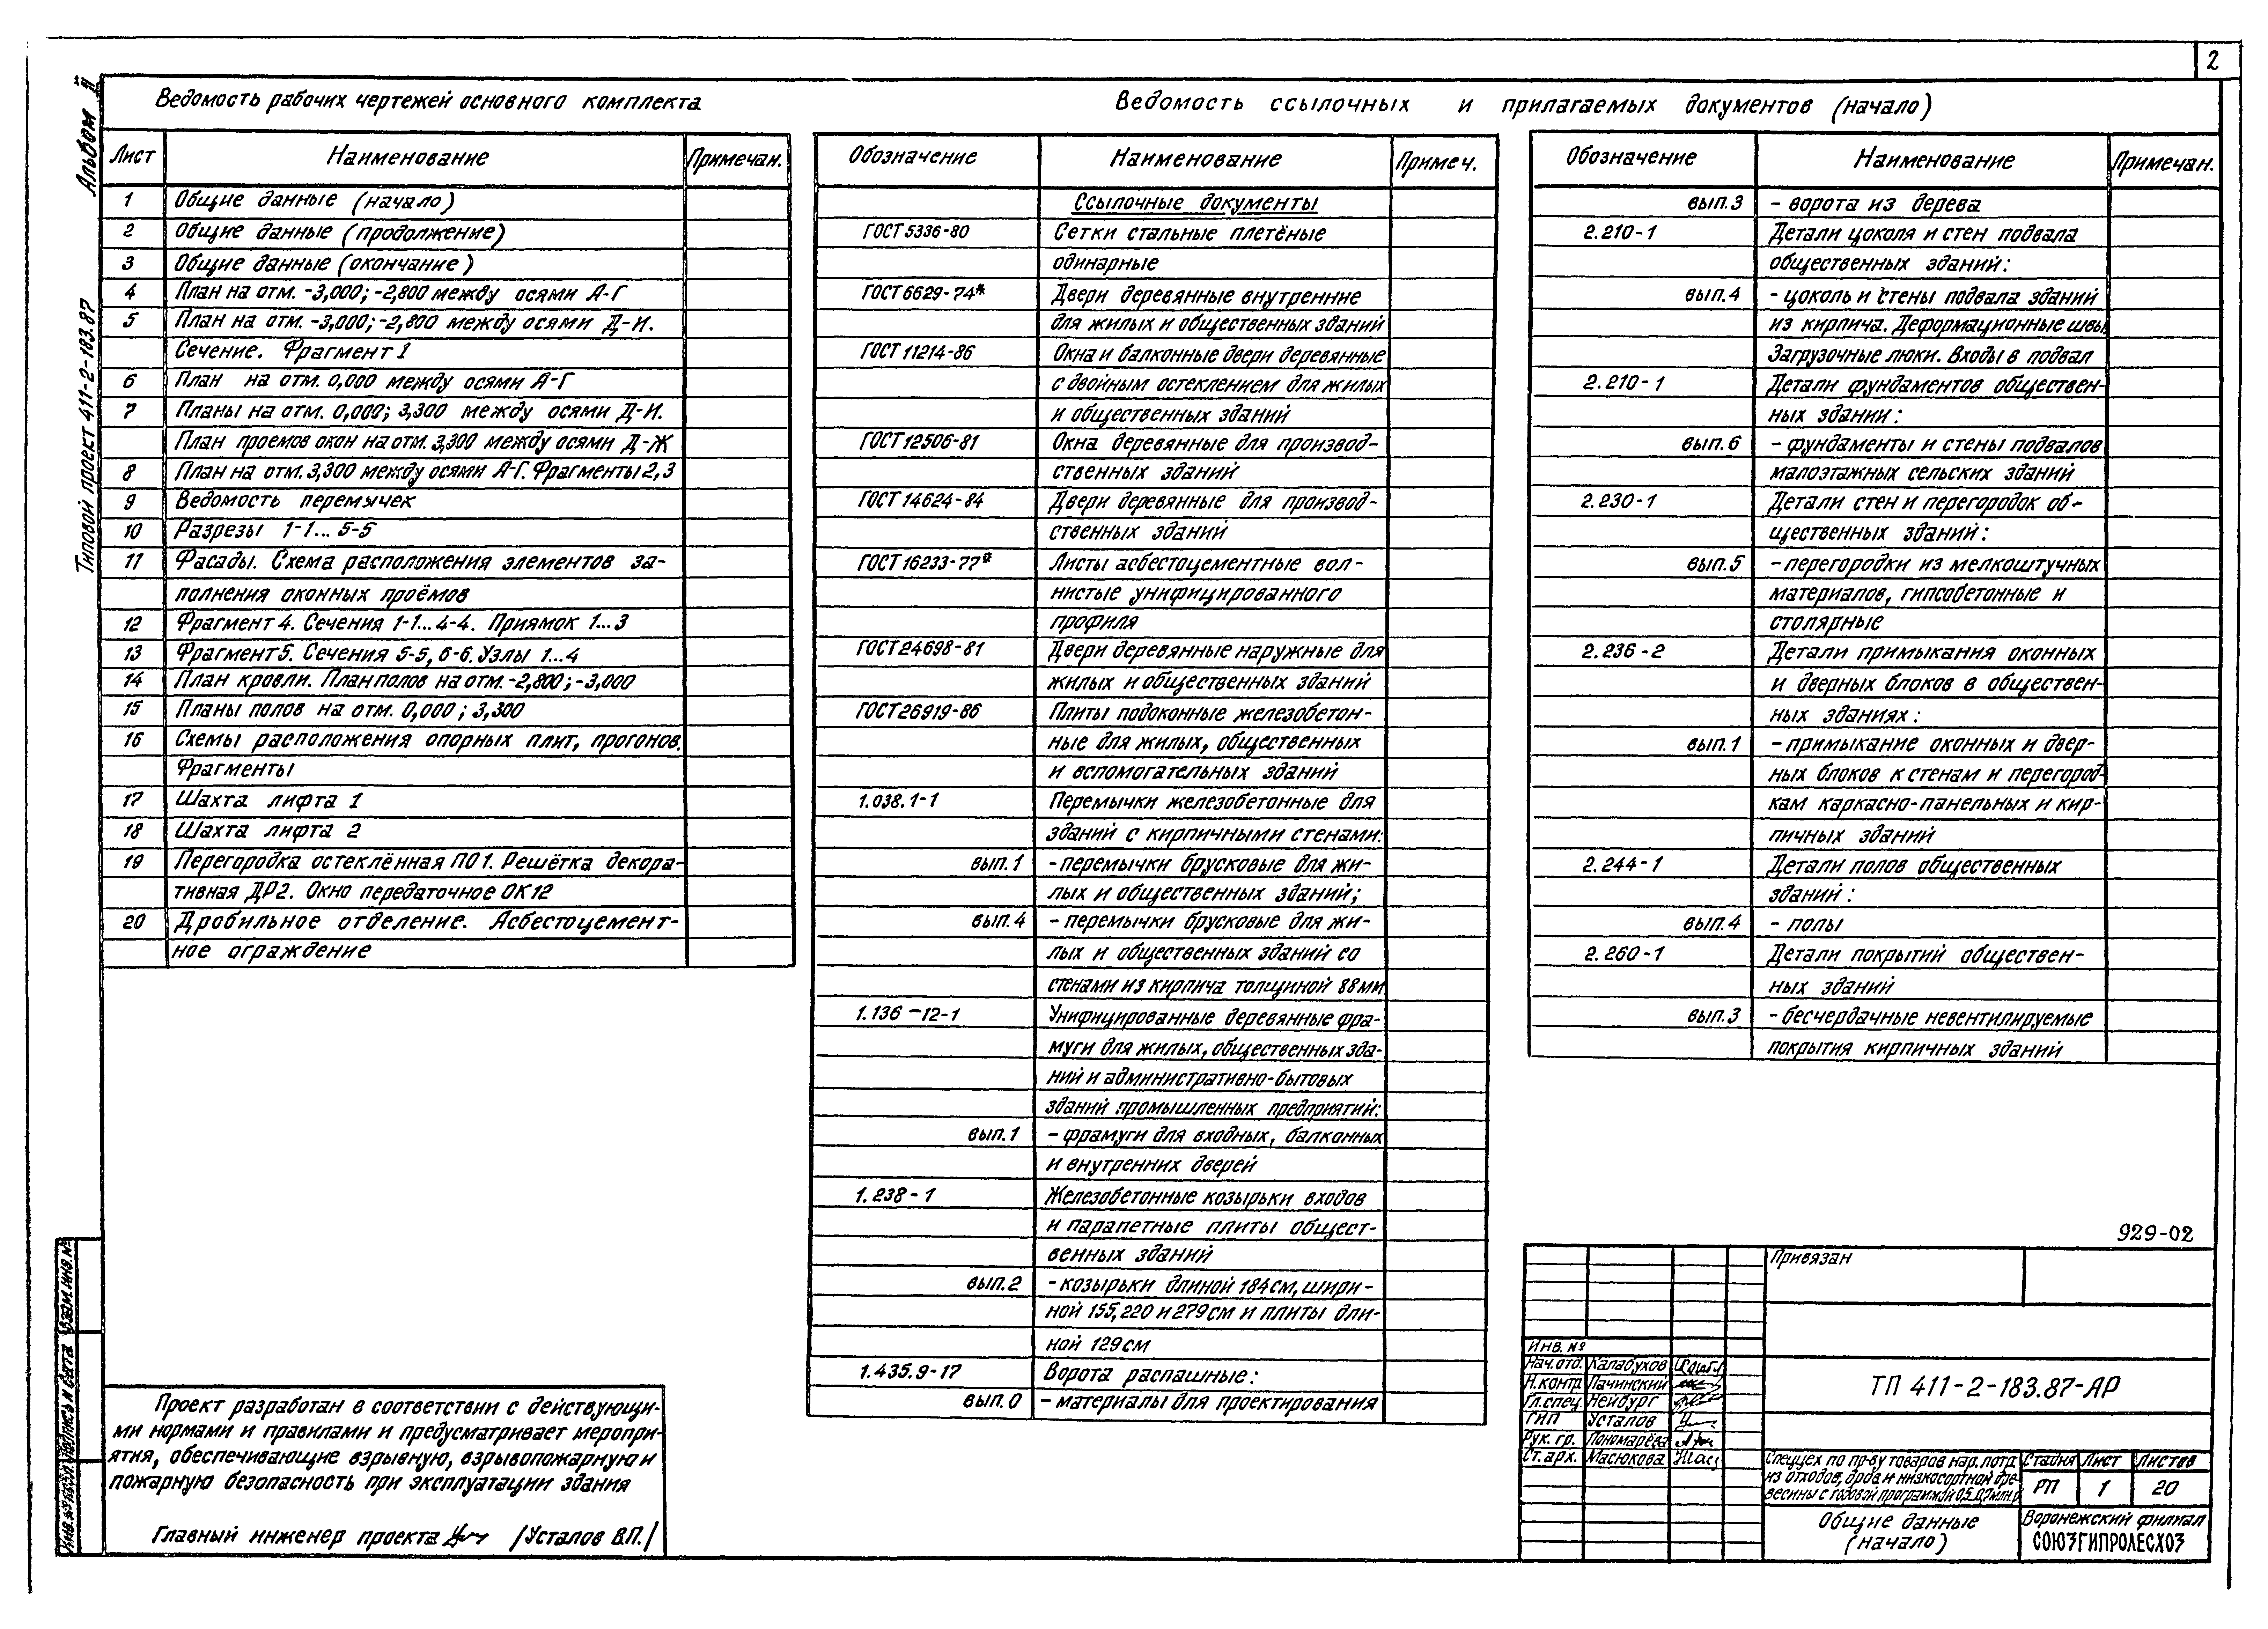 2
Альбом II
Типовой проект 411-2-183.87
Ведомость рабочих чертежей основного комплекта
Лист Наименование Примечан.
1 Общие данные (начало)
2 Общие данные (продолжение)
3 Общие данные (окончание)
4 План на отм. -3,000; -2,800 между осями А-Г
5 План на отм. -3,000; -2,800 между осями Д-И.
Сечение. Фрагмент 1
6 План на отм. 0,000 между осями А-Г
7 Планы на отм. 0,000; 3,300 между осями Д-И.
План проемов окон на отм. 3,300 между осями Д-Ж
8 План на отм. 3,300 между осями А-Г. Фрагменты 2,3
9 Ведомость перемычек
10 Разрезы 1-1... 5-5
11 Фасады. Схема расположения элементов за-
полнения оконных проёмов
12 Фрагмент 4. Сечения 1-1... 4-4. Приямок 1...3
13 Фрагмент 5. Сечения 5-5, 6-6. Узлы 1...4
14 План кровли. План полов на отм. -2,800; -3,000
15 Планы полов на отм. 0,000; 3,300
16 Схемы расположения опорных плит, прогонов.
Фрагменты
17 Шахта лифта 1
18 Шахта лифта 2
19 Перегородка остеклённая ПО1. Решётка декора-
тивная ДР2. Окно передаточное ОК12
20 Дробильное отделение. Асбестоцемент-
ное ограждение
Ведомость ссылочных и прилагаемых документов (начало)
Обозначение Наименование Примеч.
Ссылочные документы
ГОСТ 5336-80 Сетки стальные плетёные
одинарные
ГОСТ 6629-74* Двери деревянные внутренние
для жилых и общественных зданий
ГОСТ 11214-86 Окна и балконные двери деревянные
с двойным остеклением для жилых
и общественных зданий
ГОСТ 12506-81 Окна деревянные для производ-
ственных зданий
ГОСТ 14624-84 Двери деревянные для производ-
ственных зданий
ГОСТ 16233-77* Листы асбестоцементные вол-
нистые унифицированного
профиля
ГОСТ 24698-81 Двери деревянные наружные для
жилых и общественных зданий
ГОСТ 26919-86 Плиты подоконные железобетон-
ные для жилых, общественных
и вспомогательных зданий
1.038.1-1 Перемычки железобетонные для
зданий с кирпичными стенами:
вып.1 - перемычки брусковые для жи-
лых и общественных зданий;
вып.4 - перемычки брусковые для жи-
лых и общественных зданий со
стенами из кирпича толщиной 88 мм
1.136-12-1 Унифицированные деревянные фра-
муги для жилых, общественных зда-
ний и административно-бытовых
зданий промышленных предприятий:
вып.1 - фрамуги для входных, балконных
и внутренних дверей
1.238-1 Железобетонные козырьки входов
и парапетные плиты общест-
венных зданий
вып.2 - козырьки длиной 184 см, шири-
ной 155, 220 и 279 см и плиты дли-
ной 129 см
1.435.9-17 Ворота распашные:
вып.0 - материалы для проектирования
Обозначение Наименование Примечан.
вып.3 - ворота из дерева
2.210-1 Детали цоколя и стен подвала
общественных зданий:
вып.4 - цоколь и стены подвала зданий
из кирпича. Деформационные швы
Загрузочные люки. Входы в подвал
2.210-1 Детали фундаментов обществен-
ных здании:
вып.6 - фундаменты и стены подвалов
малоэтажных сельских зданий
2.230-1 Детали стен и перегородок об-
щественных зданий:
вып.5 - перегородки из мелкоштучных
материалов, гипсобетонные и
столярные
2.236-2 Детали примыкания оконных
и дверных блоков в обществен-
ных зданиях:
вып.1 - примыкание оконных и двер-
ных блоков к стенам и перегород-
кам каркасно-панельных и кир-
пичных зданий
2.244-1 Детали полов общественных
зданий:
вып.4 - полы
2.260-1 Детали покрытий обществен-
ных зданий
вып.3 - бесчердачные невентилируемые
покрытия кирпичных зданий
Проект разработан в соответствии с действующи-
ми нормами и правилами и предусматривает меропри-
ятия, обеспечивающие взрывную, взрывопожарную и
пожарную безопасность при эксплуатации здания
Главный инженер проекта /Усталов В.П./
Взам. инв. №
Подпись и дата
929-02
Привязан
Инв. №
Нач. отд. Калабухов
Н. контр. Пачинский
Гл. спец. Нейбург
ГИП Усталов
Рук. гр. Пономарёва
Ст. арх. Масюкова
ТП 411-2-183.87-АР
Спеццех по пр-ву товаров нар. потр.
из отходов, дров и низкосортной дре-
весины с годовой программой
Стадия Лист Листов
РП 1 20
Общие данные
(начало)
Воронежский филиал
СОЮЗГИПРОЛЕСХОЗ